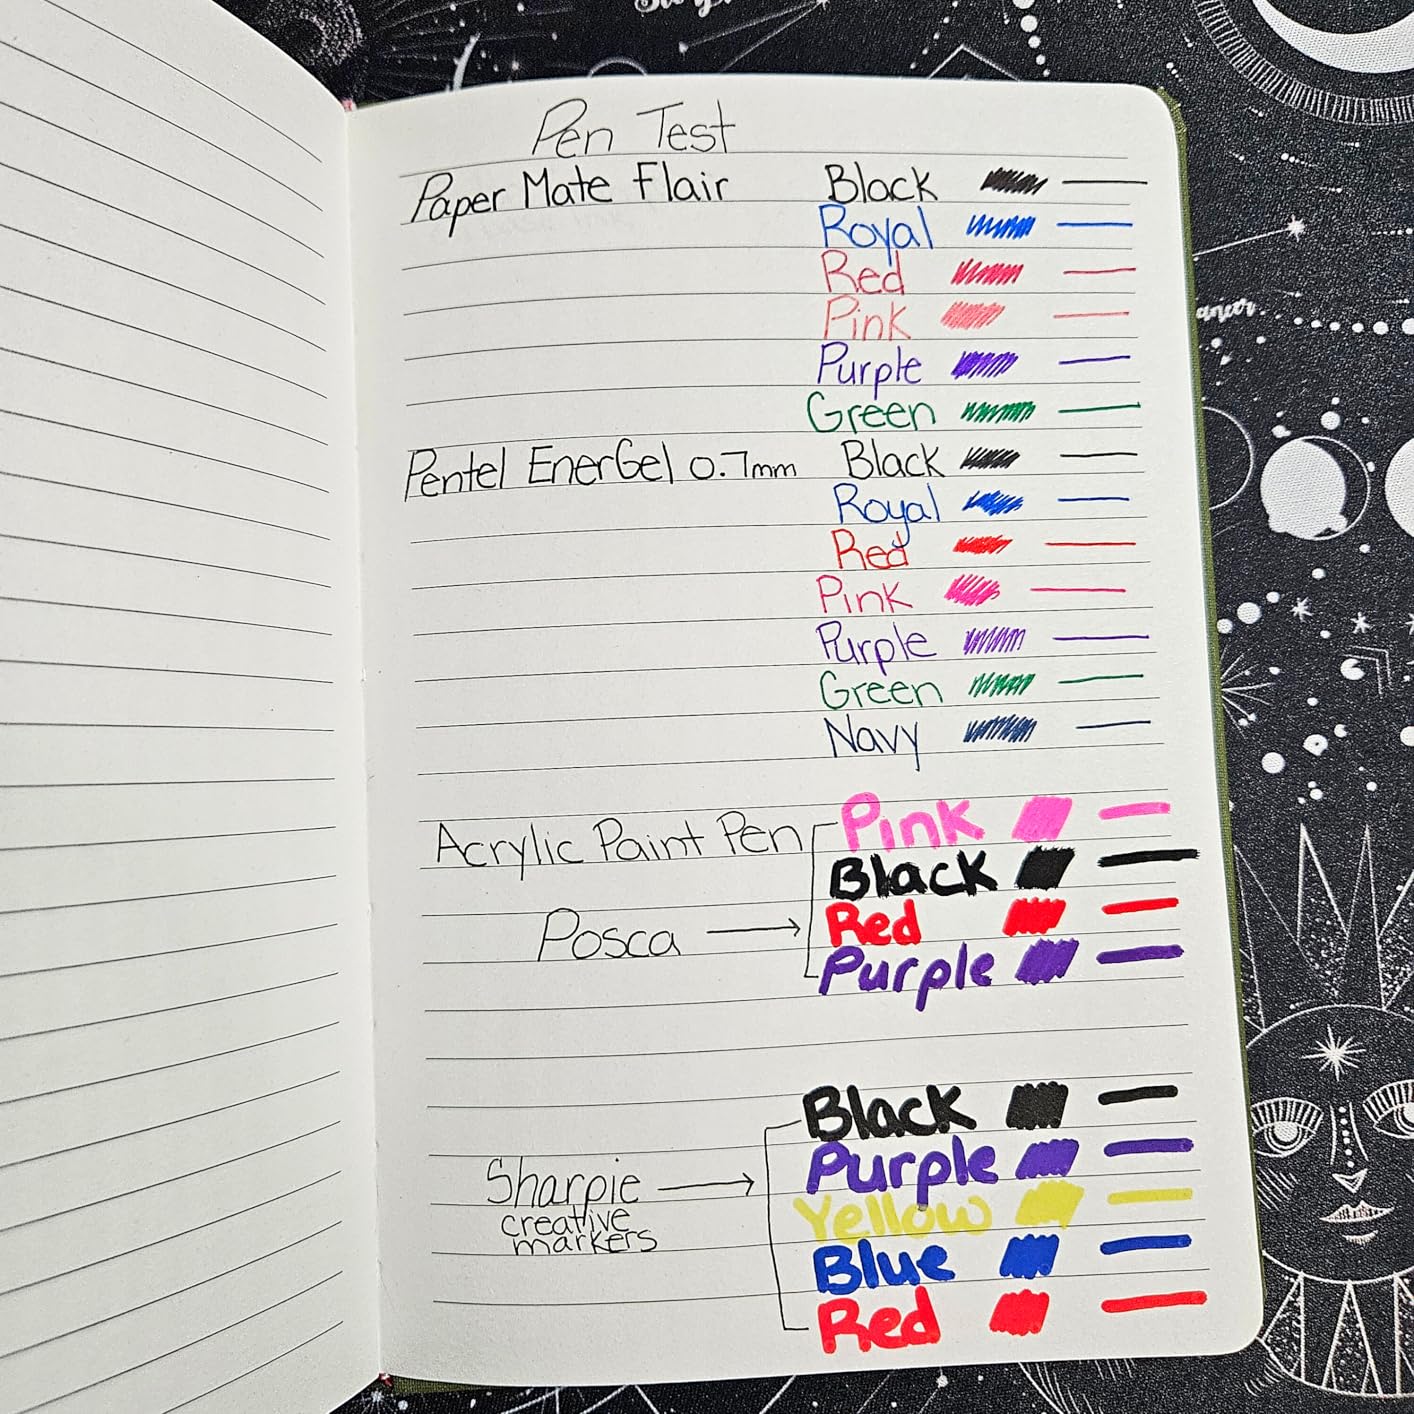 Pen Test
Paper Mate Flair Black
Royal
Red
Pink
Purple
Green
Pentel EnerGel 0.7mm Black
Royal
Red
Pink
Purple
Green
Navy
Acrylic Paint Pen Pink
Black
Posca Red
Purple
Black
Sharpie Purple
creative Yellow
markers Blue
Red